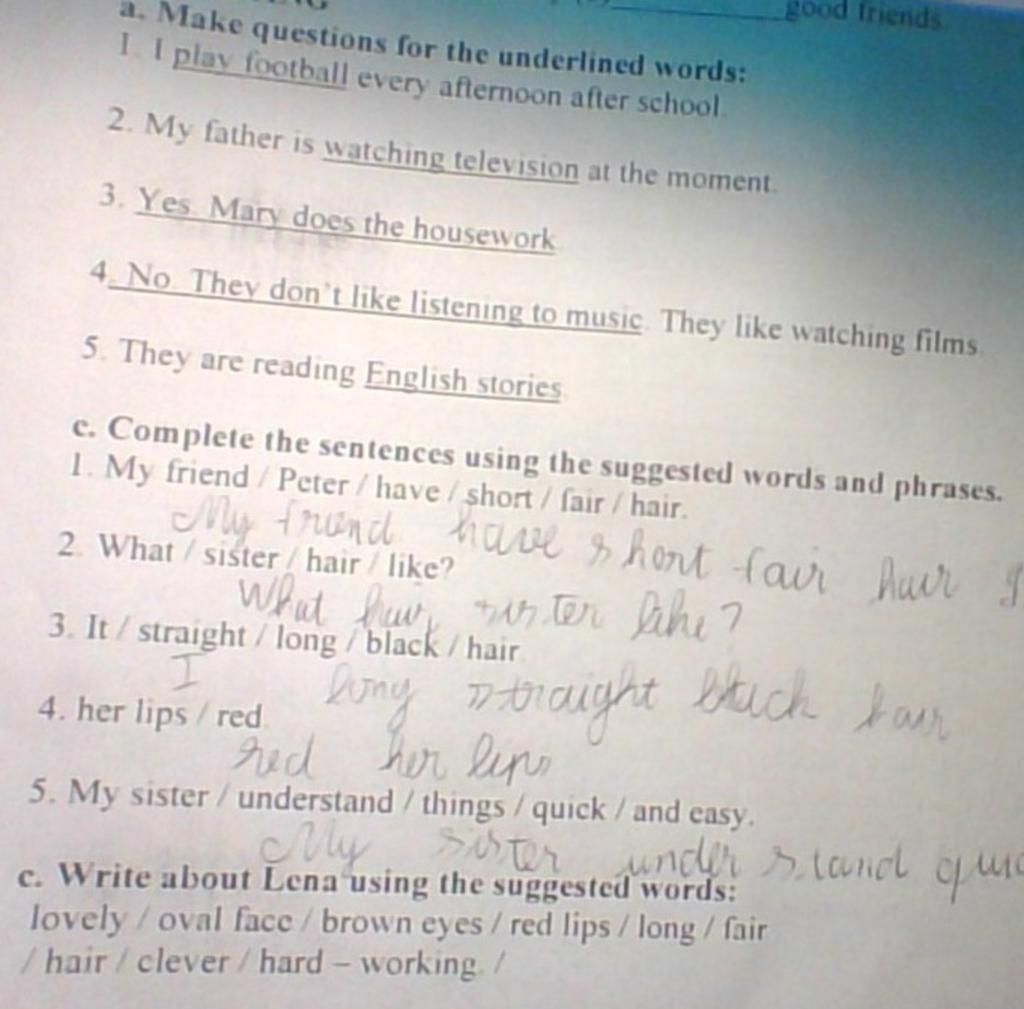 good friends.
a. Make questions for the underlined words:
1. I play football every afternoon after school.
2. My father is watching television at the moment.
3. Yes. Mary does the housework.
4. No. They don't like listening to music. They like watching films.
5. They are reading English stories.
c. Complete the sentences using the suggested words and phrases.
1. My friend / Peter / have / short / fair / hair.
My friend have short fair hair
2. What / sister / hair / like?
What hair sister like?
3. It / straight / long / black / hair.
I long straight black hair
4. her lips / red.
red her lips
5. My sister / understand / things / quick / and easy.
My sister under stand
c. Write about Lena using the suggested words:
lovely / oval face / brown eyes / red lips / long / fair
/ hair / clever / hard – working. /